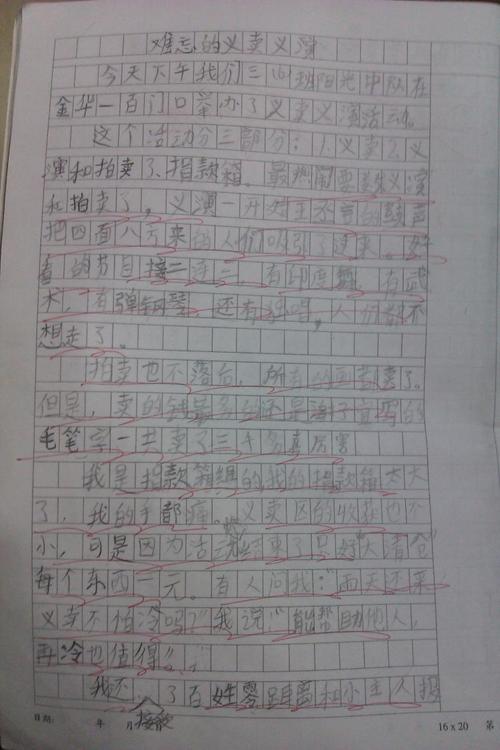 难忘的义卖义演
今天下午我们三(4)班阳光中队在
金华一百门口举办了义卖义演活动。
这个活动分三部分:1.义卖2.义
演和拍卖3.捐款箱。最热闹要数义演
和拍卖了,义演一开始主不的鼓声
把四面八方来的人们吸引了过来。好
看的节目接二连三,有印度舞,有武
术,有弹钢琴,还有独唱,人们都不
想走了。
拍卖也不落后,所有的画都卖了。
但是,卖的钱最多的还是写的
毛笔字一共卖了三千多真厉害
我是捐款箱组的我的捐款箱太大
了,我的手都痛。义卖区的收获也不
小,可是因为活动快结束了只好"大清仓"
每个东西一元。有人问我:"雨天还来
义卖不怕冷吗?"我说:"能帮助他人,
再冷也值得!"
我还接触了百姓零距离和小主人报
日期: 年 月
16×20 第